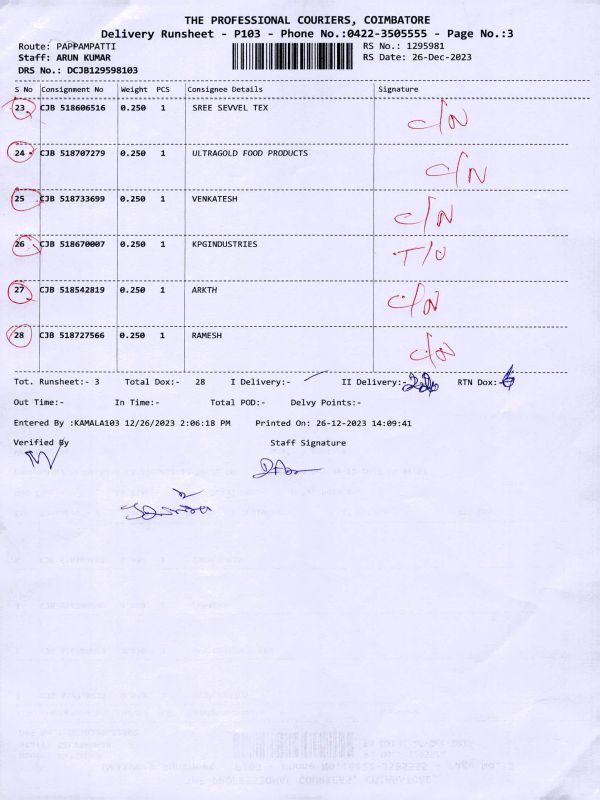 THE PROFESSIONAL COURIERS, COIMBATORE
Delivery Runsheet - P103 - Phone No.:0422-3505555 - Page No.:3
Route: PAPPAMPATTI RS No.: 1295981
Staff: ARUN KUMAR RS Date: 26-Dec-2023
DRS No.: DCJB129598103
S No Consignment No Weight PCS Consignee Details Signature
23 CJB 518606516 0.250 1 SREE SEVVEL TEX C/N
24 CJB 518707279 0.250 1 ULTRAGOLD FOOD PRODUCTS C/N
25 CJB 518733699 0.250 1 VENKATESH C/N
26 CJB 518670007 0.250 1 KPGINDUSTRIES T/O
27 CJB 518542819 0.250 1 ARKTH C/N
28 CJB 518727566 0.250 1 RAMESH C/N
Tot. Runsheet:- 3 Total Dox:- 28 I Delivery:- II Delivery:- RTN Dox:-
Out Time:- In Time:- Total POD:- Delvy Points:-
Entered By :KAMALA103 12/26/2023 2:06:18 PM Printed On: 26-12-2023 14:09:41
Verified By Staff Signature